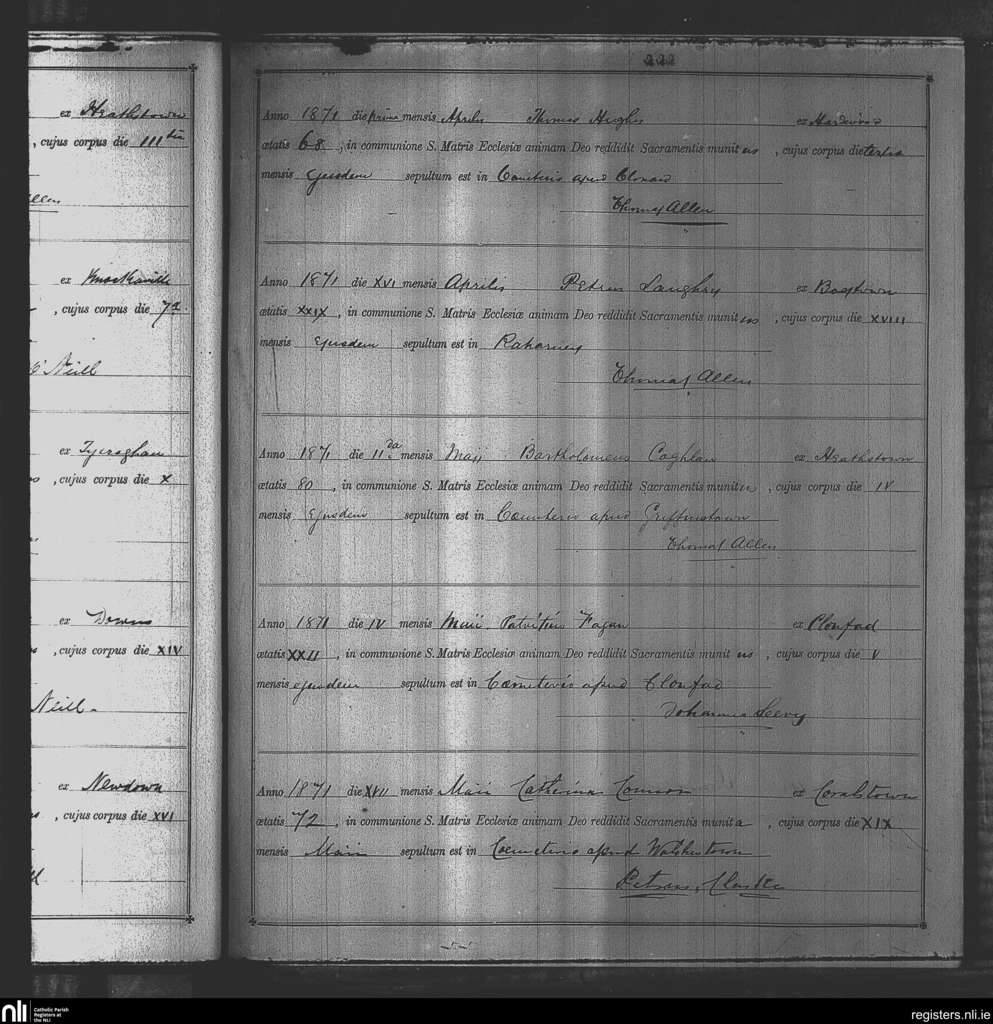 ex Heathstown
, cujus corpus die III
ex
, cujus corpus die 7a.
O'Neill
ex Tyeraghan
, cujus corpus die X
ex Downs
, cujus corpus die XIV
Neill.
ex Newdown
, cujus corpus die XVI
222
Anno 1871 die prima mensis Aprilis Thomas Hughes ex Hardwood
ætatis 68, in communione S. Matris Ecclesiæ animam Deo reddidit Sacramentis munitus, cujus corpus die tertia
mensis Ejusdem sepultum est in Cœmeterio apud Clonard
Thomas Allen
Anno 1871 die XVI mensis Aprilis Petrus Laughry ex Bogtown
ætatis XXIX, in communione S. Matris Ecclesiæ animam Deo reddidit Sacramentis munitus, cujus corpus die XVIII
mensis Ejusdem sepultum est in Raharney
Thomas Allen
Anno 1871 die 11da mensis Maij Bartholomeus Coghlan ex Heathstown
ætatis 80, in communione S. Matris Ecclesiæ animam Deo reddidit Sacramentis munitus, cujus corpus die IV
mensis Ejusdem sepultum est in Cœmeterio apud Griffinstown
Thomas Allen
Anno 1871 die IV mensis Maii. Patritius Fagan ex Clonfad
ætatis XXII, in communione S. Matris Ecclesiæ animam Deo reddidit Sacramentis munitus, cujus corpus die V
mensis ejusdem sepultum est in Cœmeterio apud Clonfad
Johannes Leevy
Anno 1871 die XVII mensis Maii Catherina Connor ex Coralstown
ætatis 72, in communione S. Matris Ecclesiæ animam Deo reddidit Sacramentis munita, cujus corpus die XIX
mensis Maii sepultum est in Cœmeterio apud Watshestown
Petrus Clarke
nli Catholic Parish
Registers at
the NLI
registers.nli.ie